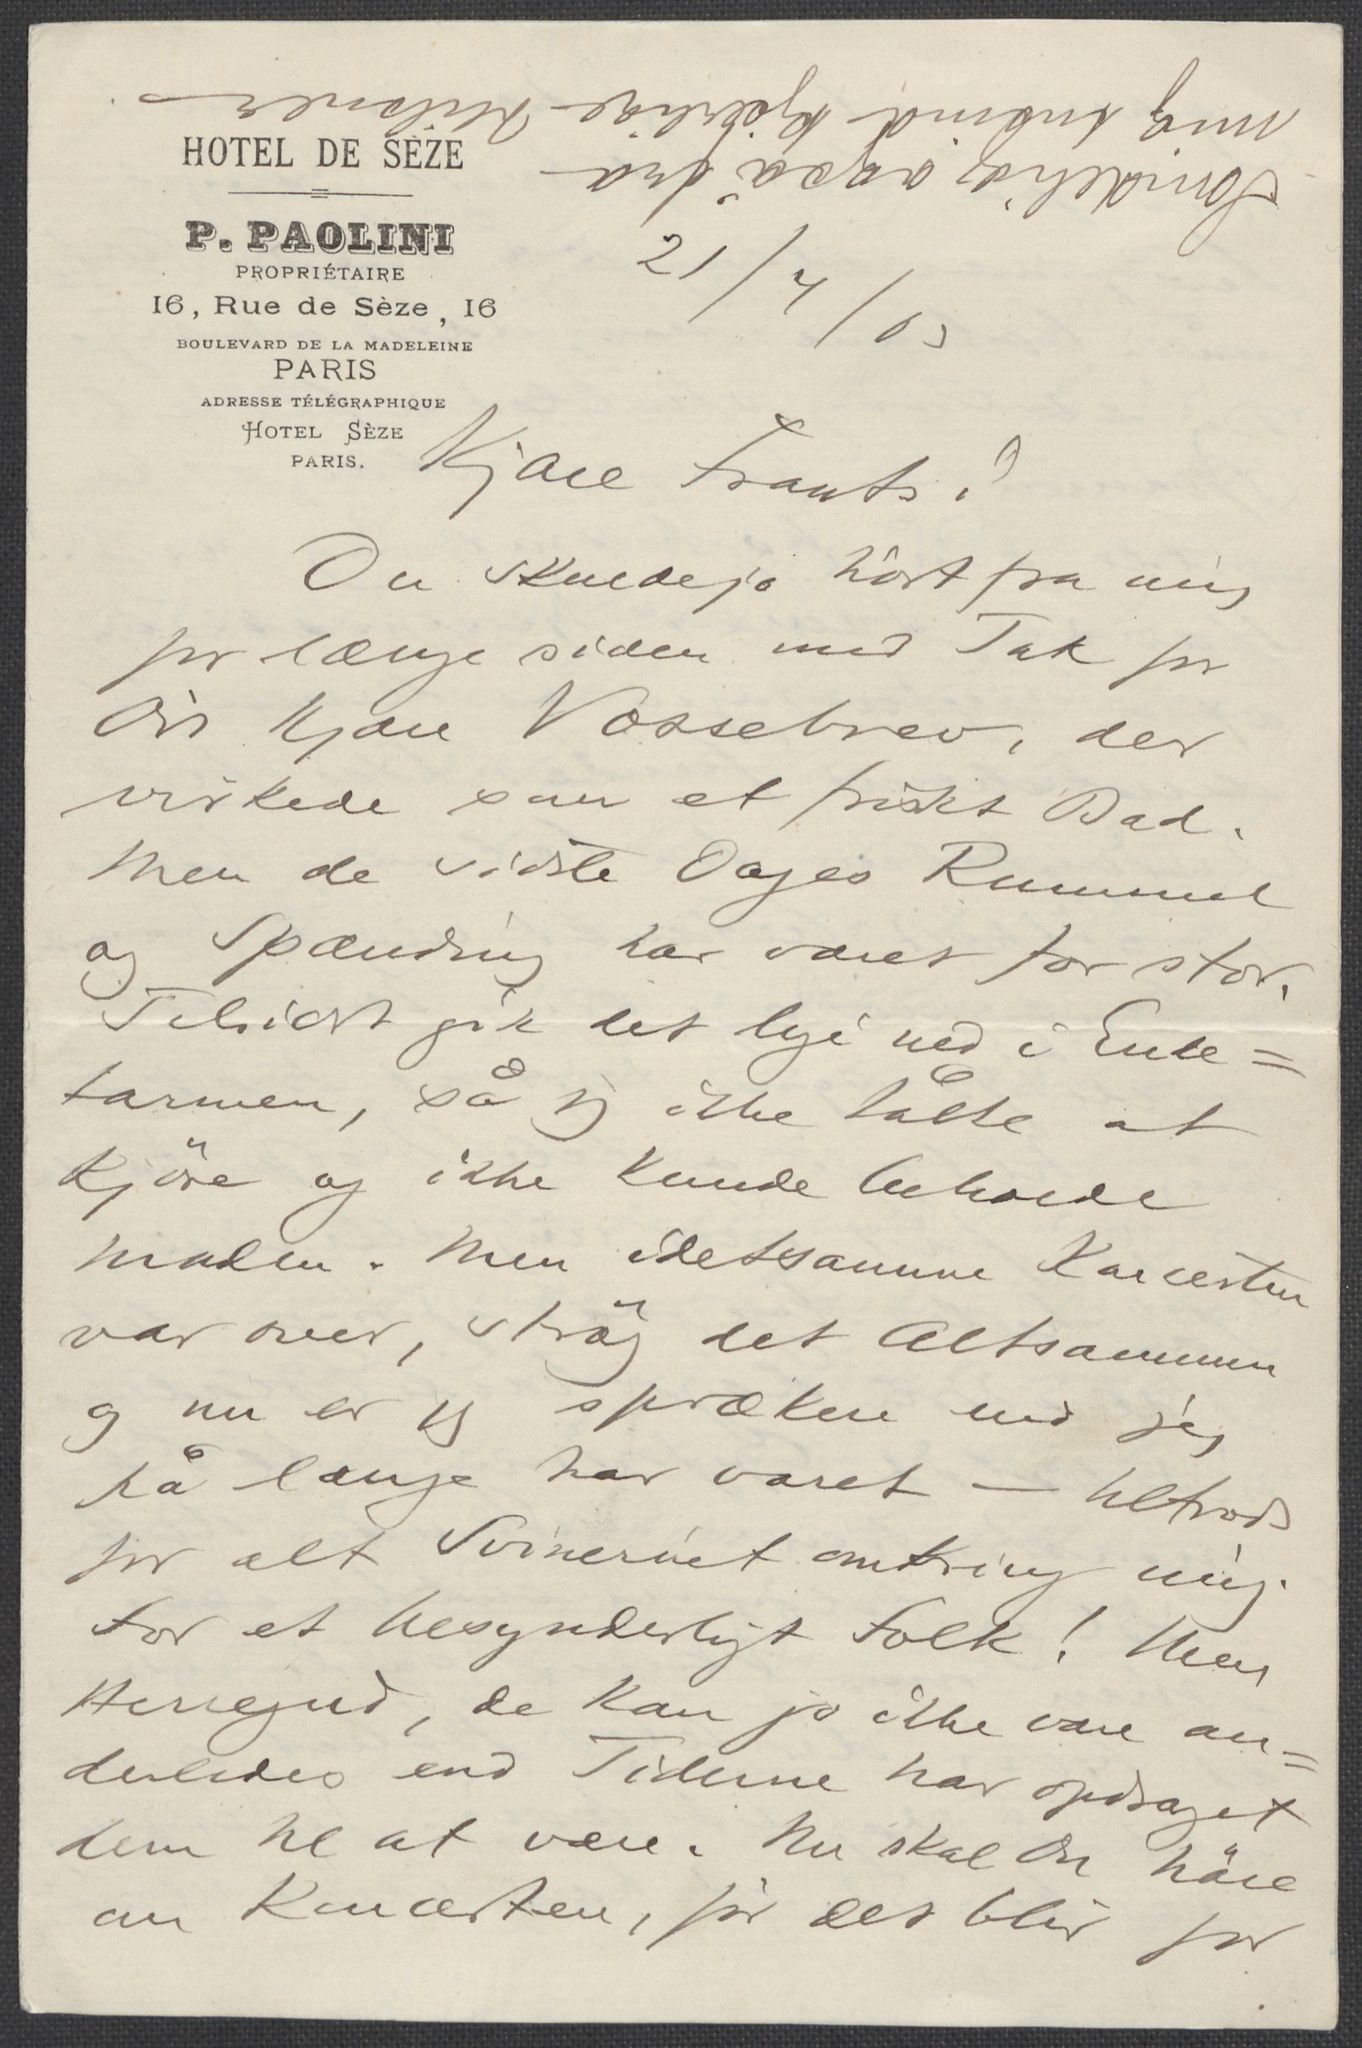 HOTEL DE SÈZE
P. PAOLINI
PROPRIÉTAIRE
16, Rue de Sèze, 16
BOULEVARD DE LA MADELEINE
PARIS
ADRESSE TÉLÉGRAPHIQUE
HOTEL SÈZE
PARIS.
21/4/03
Kjære Frants!
Du skulde jo hört fra mig
for længe siden med Tak for
Dit kjære Vossebrev, der
virkede som et friskt Bad.
Men de sidste Dages Rummel
og Spænding har været for stor.
Tilsidst gik det lige ned i Ende=
tarmen, så jeg ikke tålte at
kjöre og ikke kunde beholde
Maden. Men idetsamme Koncerten
var over, strög det Altsammen
og nu er jeg sprækere end jeg
på længe har været – tiltrods
for alt Svineriet omkring mig.
For et besynderligt Folk! Men
Herregud, de kan jo ikke være an=
derledes end Tiderne har opdraget
dem til at være. Nu skal Du höre
om Koncerten, för det blir for
også fra
mig kjærlige Hilsner